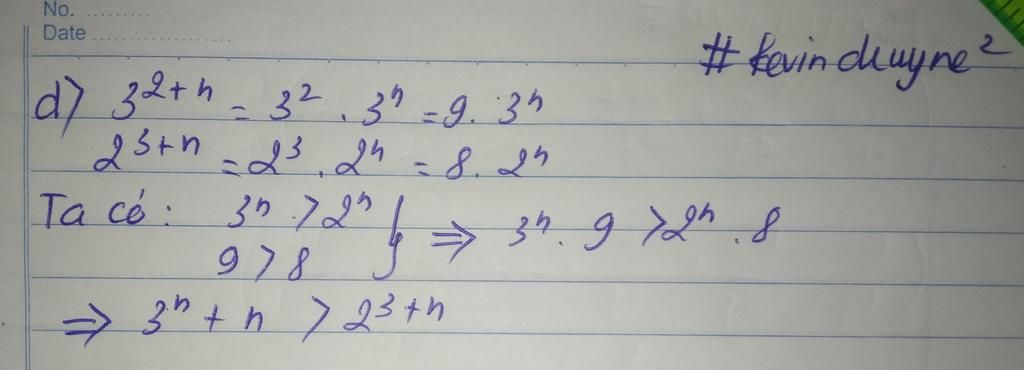 No. .........
Date ....................
# kevindkuyne²
d) 3^{2+n} = 3² . 3ⁿ = 9 . 3ⁿ
2^{3+n} = 2³ . 2ⁿ = 8 . 2ⁿ
Ta có : 3ⁿ > 2ⁿ } ⇒ 3ⁿ . 9 > 2ⁿ . 8
9 > 8
⇒ 3ⁿ + n > 2^{3+n}